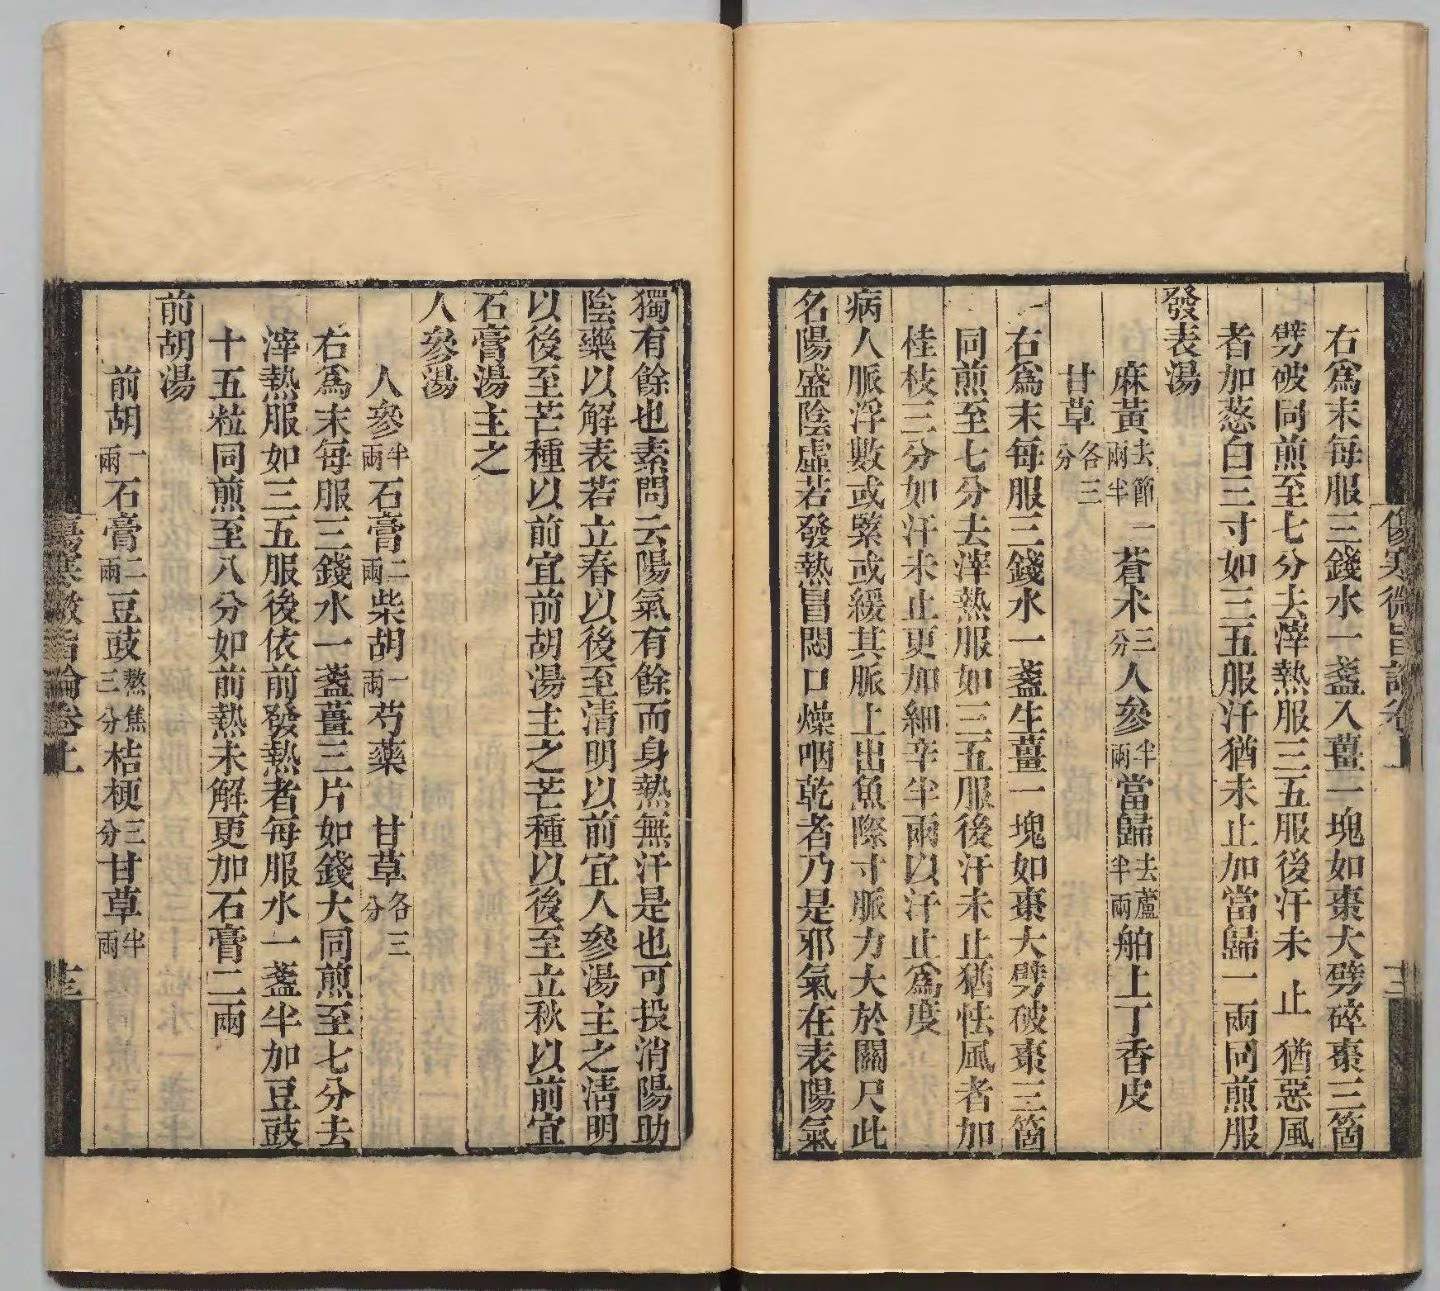 右爲末每服三錢水一盞入薑一塊如棗大劈碎棗三箇
劈破同煎至七分去滓熱服三五服後汗未止猶惡風
者加葱白三寸如三五服汗猶未止加當歸一兩同煎服
發表湯
麻黃去節一兩半蒼朮三分人參半兩當歸去蘆半兩舶上丁香皮
甘草各三分
右爲末每服三錢水一盞生薑一塊如棗大劈破棗三箇
同煎至七分去滓熱服如三五服後汗未止猶怯風者加
桂枝三分如汗未止更加細辛半兩以汗止爲度
病人脈浮數或緊或緩其脈上出魚際寸脈力大於關尺此
名陽盛陰虛若發熱冒悶口燥咽乾者乃是邪氣在表陽氣
傷寒微旨論卷上
十三
獨有餘也素問云陽氣有餘而身熱無汗是也可投消陽助
陰藥以解表若立春以後至清明以前宜人參湯主之清明
以後至芒種以前宜前胡湯主之芒種以後至立秋以前宜
石膏湯主之
人參湯
人參半兩石膏二兩柴胡一兩芍藥 甘草各三分
右爲末每服三錢水一盞薑三片如錢大同煎至七分去
滓熱服如三五服後依前發熱者每服水一盞半加豆豉
十五粒同煎至八分如前熱未解更加石膏二兩
前胡湯
前胡一兩石膏二兩豆豉熬焦三分桔梗三分甘草半兩
傷寒微旨論卷上
十三